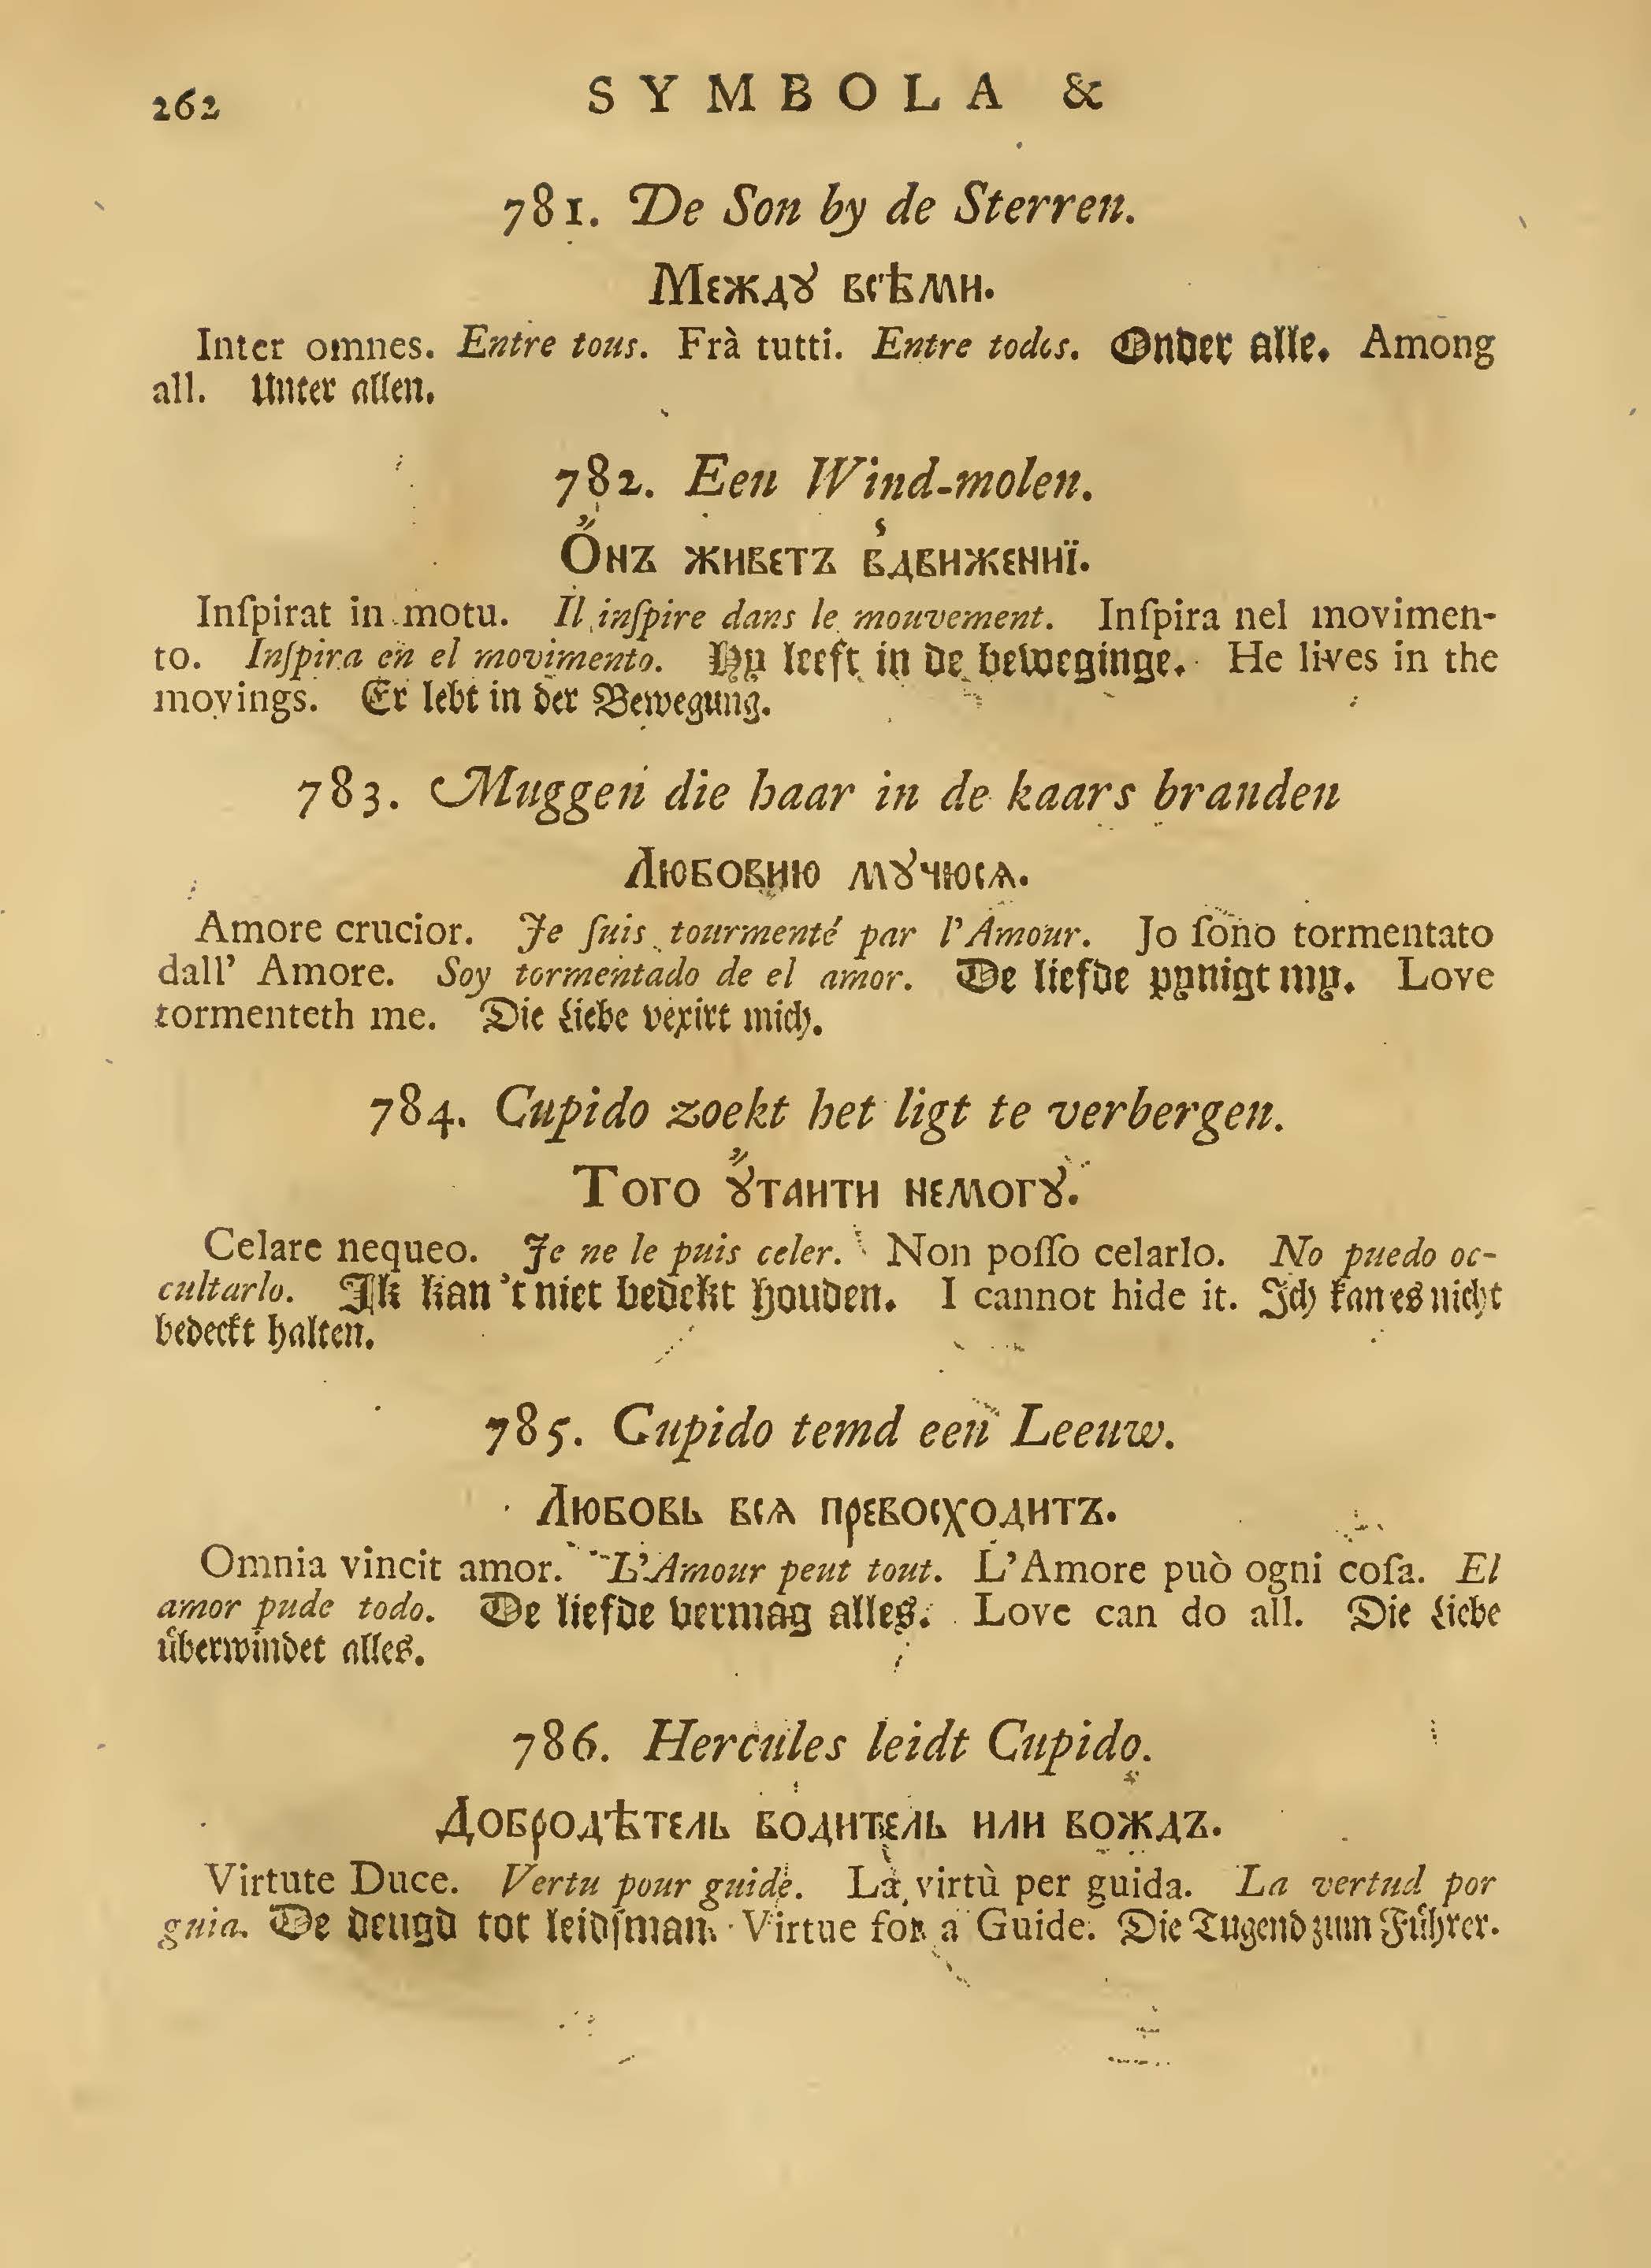 262
SYMBOLA &
781. De Son by de Sterren.
Междꙋ всѣми.
Inter omnes. Entre tous. Frà tutti. Entre todos. Onder alle. Among
all. Unter allen.
782. Een Wind-molen.
Ѻ҆нъ живетъ вдвижениї.
Inſpirat in motu. Il inſpire dans le mouvement. Inſpira nel movimen-
to. Inſpira en el movimento. Hy leeft in de beweginge. He lives in the
movings. Er lebt in der Bewegung.
783. Muggen die haar in de kaars branden
Любовию мꙋчюсѧ.
Amore crucior. Je ſuis tourmenté par l'Amour. Jo ſono tormentato
dall' Amore. Soy tormentado de el amor. De liefde pynigt my. Love
tormenteth me. Die Liebe vexirt mich.
784. Cupido zoekt het ligt te verbergen.
Того ꙋтаити немогꙋ.
Celare nequeo. Je ne le puis celer. Non poſſo celarlo. No puedo oc-
cultarlo. Ik kan 't niet bedekt houden. I cannot hide it. Ich kan es nicht
bedeckt halten.
785. Cupido temd een Leeuw.
Любовь всѧ превосходитъ.
Omnia vincit amor. L'Amour peut tout. L'Amore può ogni coſa. El
amor pude todo. De liefde vermag alles. Love can do all. Die Liebe
überwindet alles.
786. Hercules leidt Cupido.
Добродѣтель водитель или вождъ.
Virtute Duce. Vertu pour guide. La virtù per guida. La vertud por
guia. De deugd tot leidſman. Virtue for a Guide. Die Tugend zum Führer.